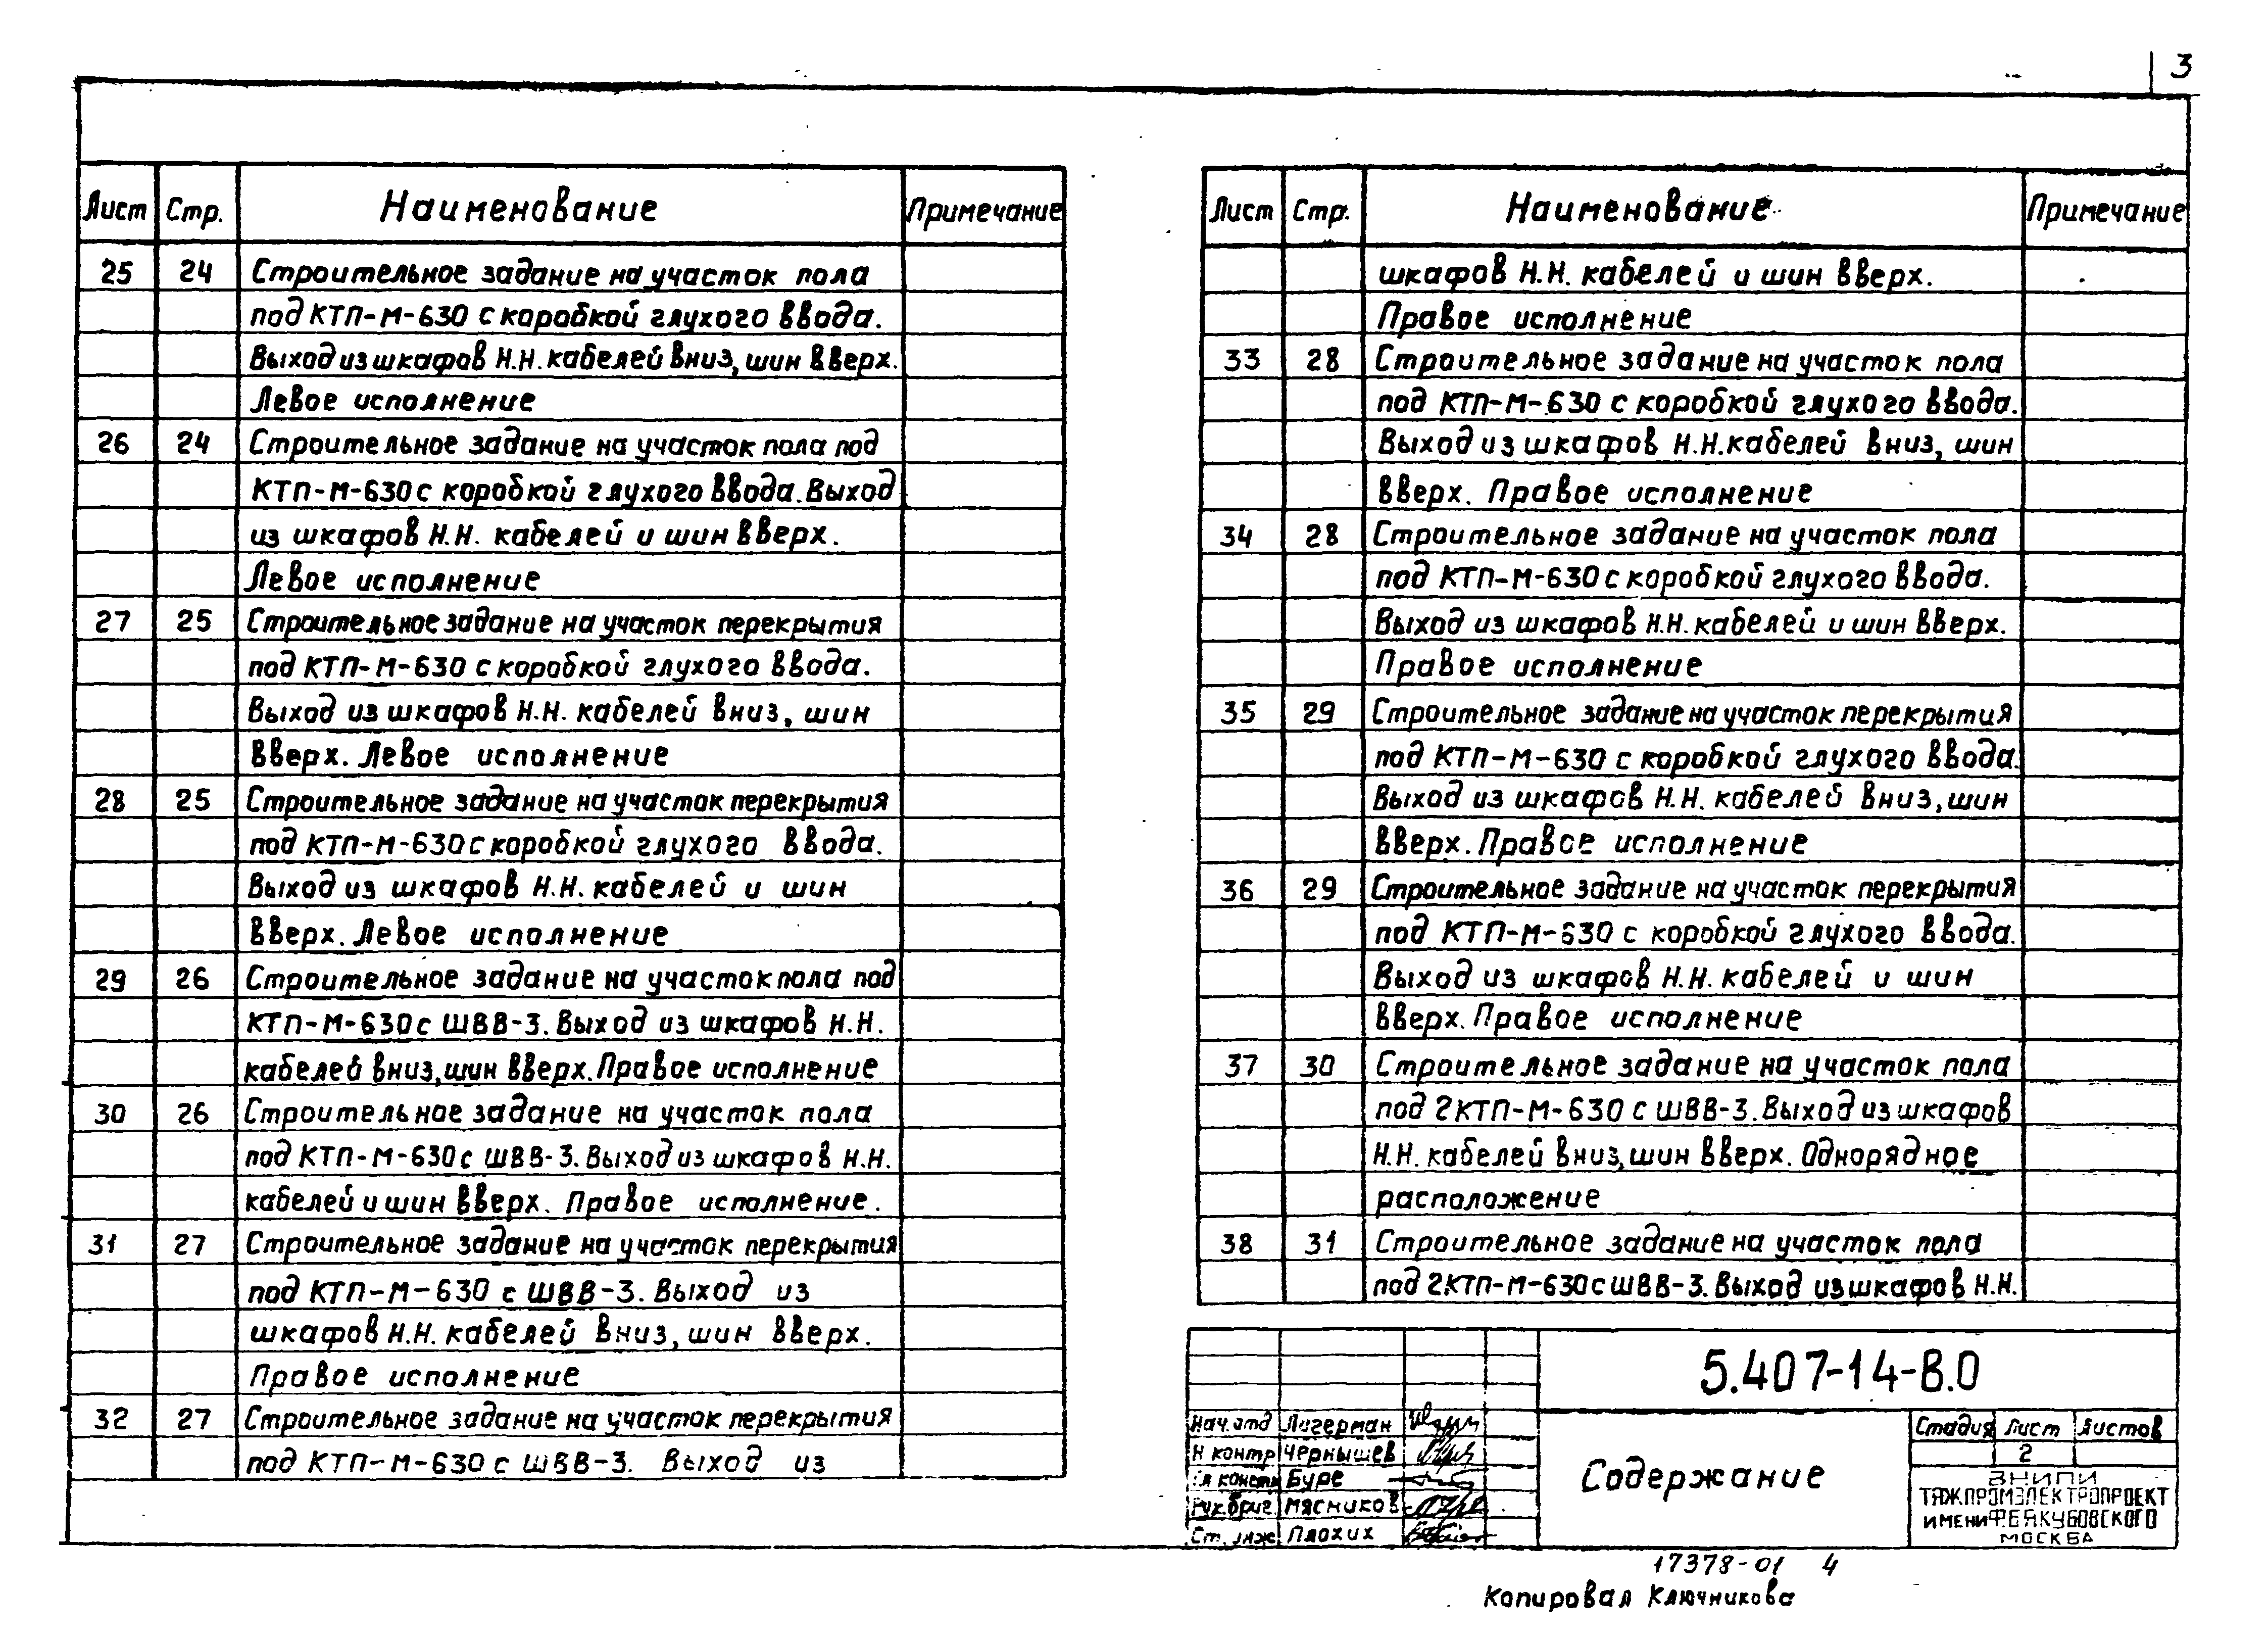 3
Лист Стр. Наименование Примечание
25 24 Строительное задание на участок пола
под КТП-М-630 с коробкой глухого ввода.
Выход из шкафов Н.Н. кабелей вниз, шин вверх.
Левое исполнение
26 24 Строительное задание на участок пола под
КТП-М-630 с коробкой глухого ввода. Выход
из шкафов Н.Н. кабелей и шин вверх.
Левое исполнение
27 25 Строительное задание на участок перекрытия
под КТП-М-630 с коробкой глухого ввода.
Выход из шкафов Н.Н. кабелей вниз, шин
вверх. Левое исполнение
28 25 Строительное задание на участок перекрытия
под КТП-М-630 с коробкой глухого ввода.
Выход из шкафов Н.Н. кабелей и шин
вверх. Левое исполнение
29 26 Строительное задание на участок пола под
КТП-М-630 с ШВВ-3. Выход из шкафов Н.Н.
кабелей вниз, шин вверх. Правое исполнение
30 26 Строительное задание на участок пола
под КТП-М-630 с ШВВ-3. Выход из шкафов Н.Н.
кабелей и шин вверх. Правое исполнение.
31 27 Строительное задание на участок перекрытия
под КТП-М-630 с ШВВ-3. Выход из
шкафов Н.Н. кабелей вниз, шин вверх.
Правое исполнение
32 27 Строительное задание на участок перекрытия
под КТП-М-630 с ШВВ-3. Выход из
Лист Стр. Наименование Примечание
шкафов Н.Н. кабелей и шин вверх.
Правое исполнение
33 28 Строительное задание на участок пола
под КТП-М-630 с коробкой глухого ввода.
Выход из шкафов Н.Н. кабелей вниз, шин
вверх. Правое исполнение
34 28 Строительное задание на участок пола
под КТП-М-630 с коробкой глухого ввода.
Выход из шкафов Н.Н. кабелей и шин вверх.
Правое исполнение
35 29 Строительное задание на участок перекрытия
под КТП-М-630 с коробкой глухого ввода.
Выход из шкафов Н.Н. кабелей вниз, шин
вверх. Правое исполнение
36 29 Строительное задание на участок перекрытия
под КТП-М-630 с коробкой глухого ввода.
Выход из шкафов Н.Н. кабелей и шин
вверх. Правое исполнение
37 30 Строительное задание на участок пола
под 2КТП-М-630 с ШВВ-3. Выход из шкафов
Н.Н. кабелей вниз, шин вверх. Однорядное
расположение
38 31 Строительное задание на участок пола
под 2КТП-М-630 с ШВВ-3. Выход из шкафов Н.Н.
5.407-14-В.0
Нач. отд Лигерман
Н контр Чернышев
Гл констр Буре
Рук. бриг. Мясников
Ст. инж Плохих
Содержание
Стадия Лист Листов
2
ВНИПИ
ТЯЖПРОМЭЛЕКТРОПРОЕКТ
ИМЕНИ Ф Б ЯКУБОВСКОГО
МОСКВА
17378-01 4
Копировал Ключникова